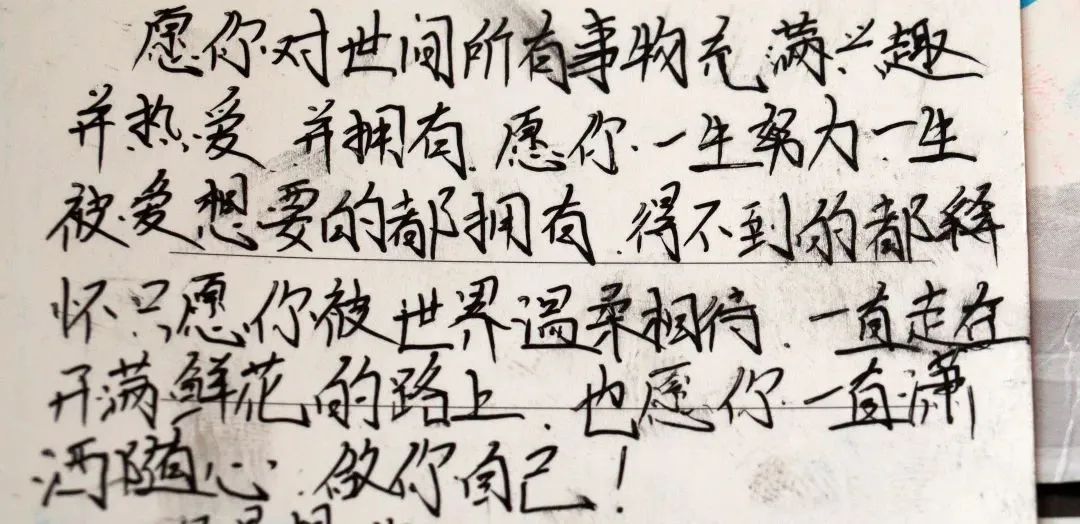 愿你对世间所有事物充满兴趣
并热爱 并拥有.愿你.一生努力一生
被爱想要的都拥有.得不到的都释
怀.只愿你被世界温柔相待.一直走在
开满鲜花的路上.也愿你.一直潇
洒随心.做你自己!